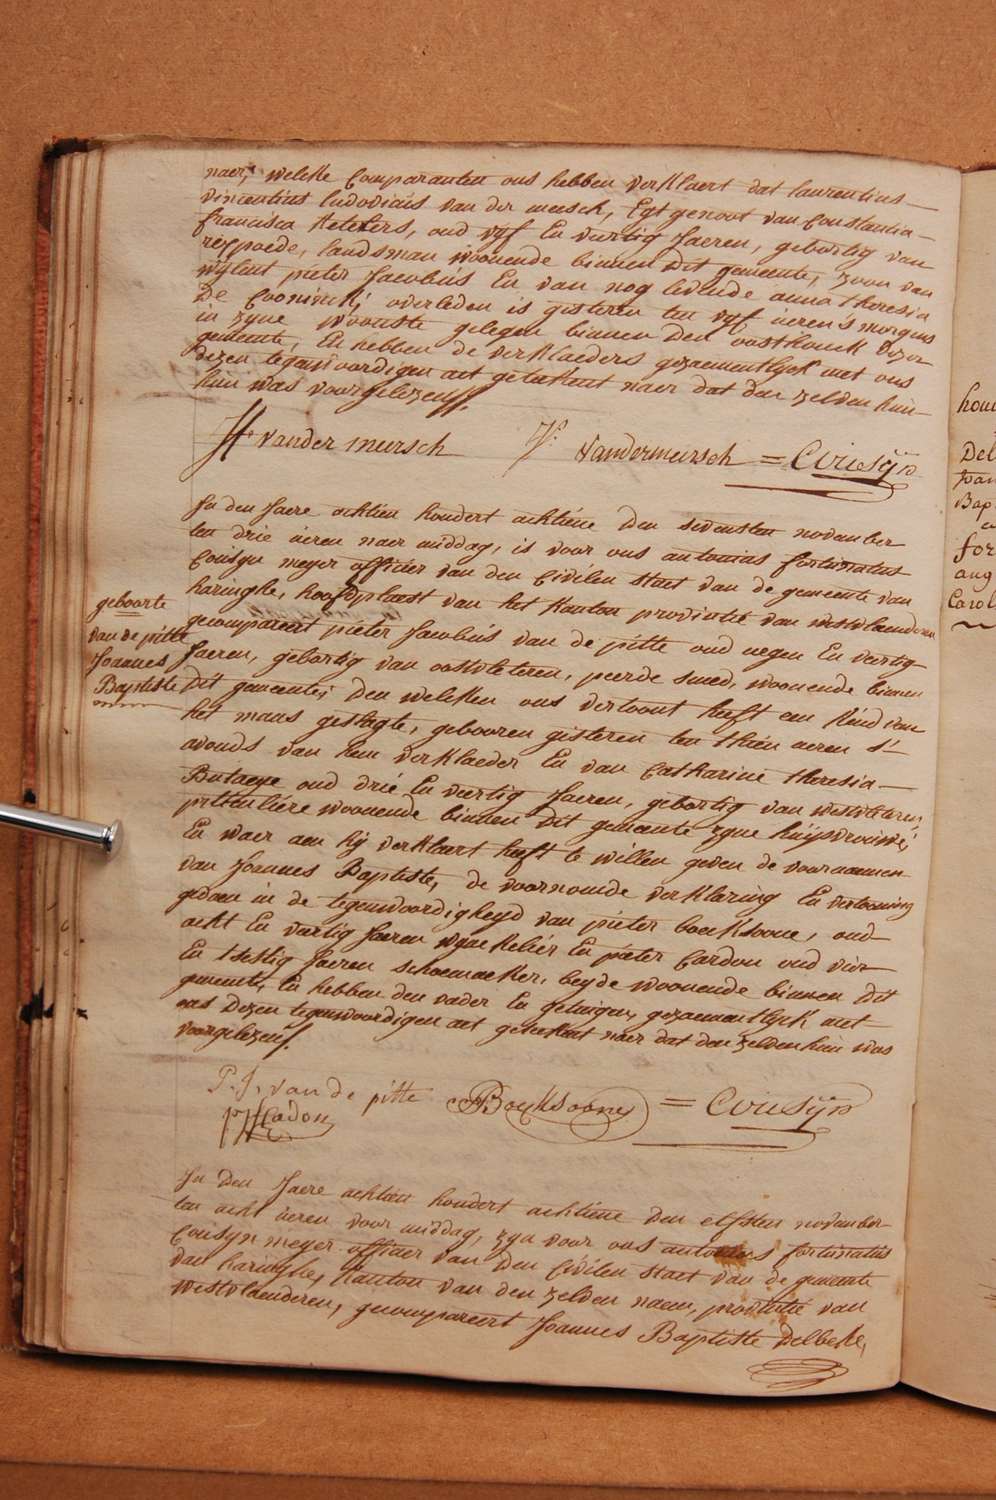 naer, welcke comparanten ons hebben verklaert dat laurentius
vincentius ludovicus van der meersch, Egtgenoot van Constantia
francisca Ketelers, oud vyf En veertig Jaeren, gebortig van
rexpoede, landsman woonende binnen dit gemeente, zoon van
wylent pieter Jacobus En van nog levende anna theresia
De Coninck, overleden is gisteren ten vyf ueren s'morgens
in zyne wooniste gelegen binnen den oosthouck dezer
gemeente, En hebben de verklaeders gezaementlyck met ons
dezen tegenwoordigen act geteekent naer dat den zelven hun
hun was voorgelezen.
vander meersch Vandermeersch = Cousyn
In den Jaere achtien hondert achtiene den sevensten november
ten drie ueren naer middag, is voor ons antonius fortunatus
Cousyn meyer officier van den Civilen staet van de gemeente van
haringhe, hoofdplaets van het kanton provintie van westvlaenderen
gecompareert pieter Jacobus van de pitte oud negen En veertig
geboorte
van de pitte
Joannes
Baptiste
Jaeren, gebortig van oostvleteren, peerde smed, woonende binnen
dit gemeente, den welcken ons vertoont heeft een kind van
het mans geslagte, gebooren gisteren ten thien ueren s'
avonds van hem verklaeder En van Catharine theresia
Butaeye oud drie En veertig Jaeren, gebortig van westvleteren
pticuliére woonende binnen dit gemeente zyne huysvrouwe,
En waer aen hy verklaert heeft te willen geven de voornaemen
van Joannes Baptiste, de voornoemde verklaring En vertooning
gedaen in de tegenwoordigheyd van pieter boeksoone, oud
acht En veertig Jaeren En pieter Cardon oud vier
En tsestig Jaeren schoemaeker, beyde woonende binnen dit
gemeente, En hebben den vader En getuigen gezaementlyck met
ons dezen tegenwoordigen act geteekent naer dat den zelven hun was
voorgelezen.
P. J. van de pitte Boeksoone = Cousyn
Cadon
In den Jaere achtien hondert achtiene den elfsten november
ten acht ueren voor middag, zyn voor ons antonius fortunatus
Cousyn meyer officier van den Civilen staet van de gemeente
van haringhe, kanton van den zelven naem, provintie van
westvlaenderen, gecompareert Joannes Baptiste Delbeke,
Del
Bap
for
ang
Carol